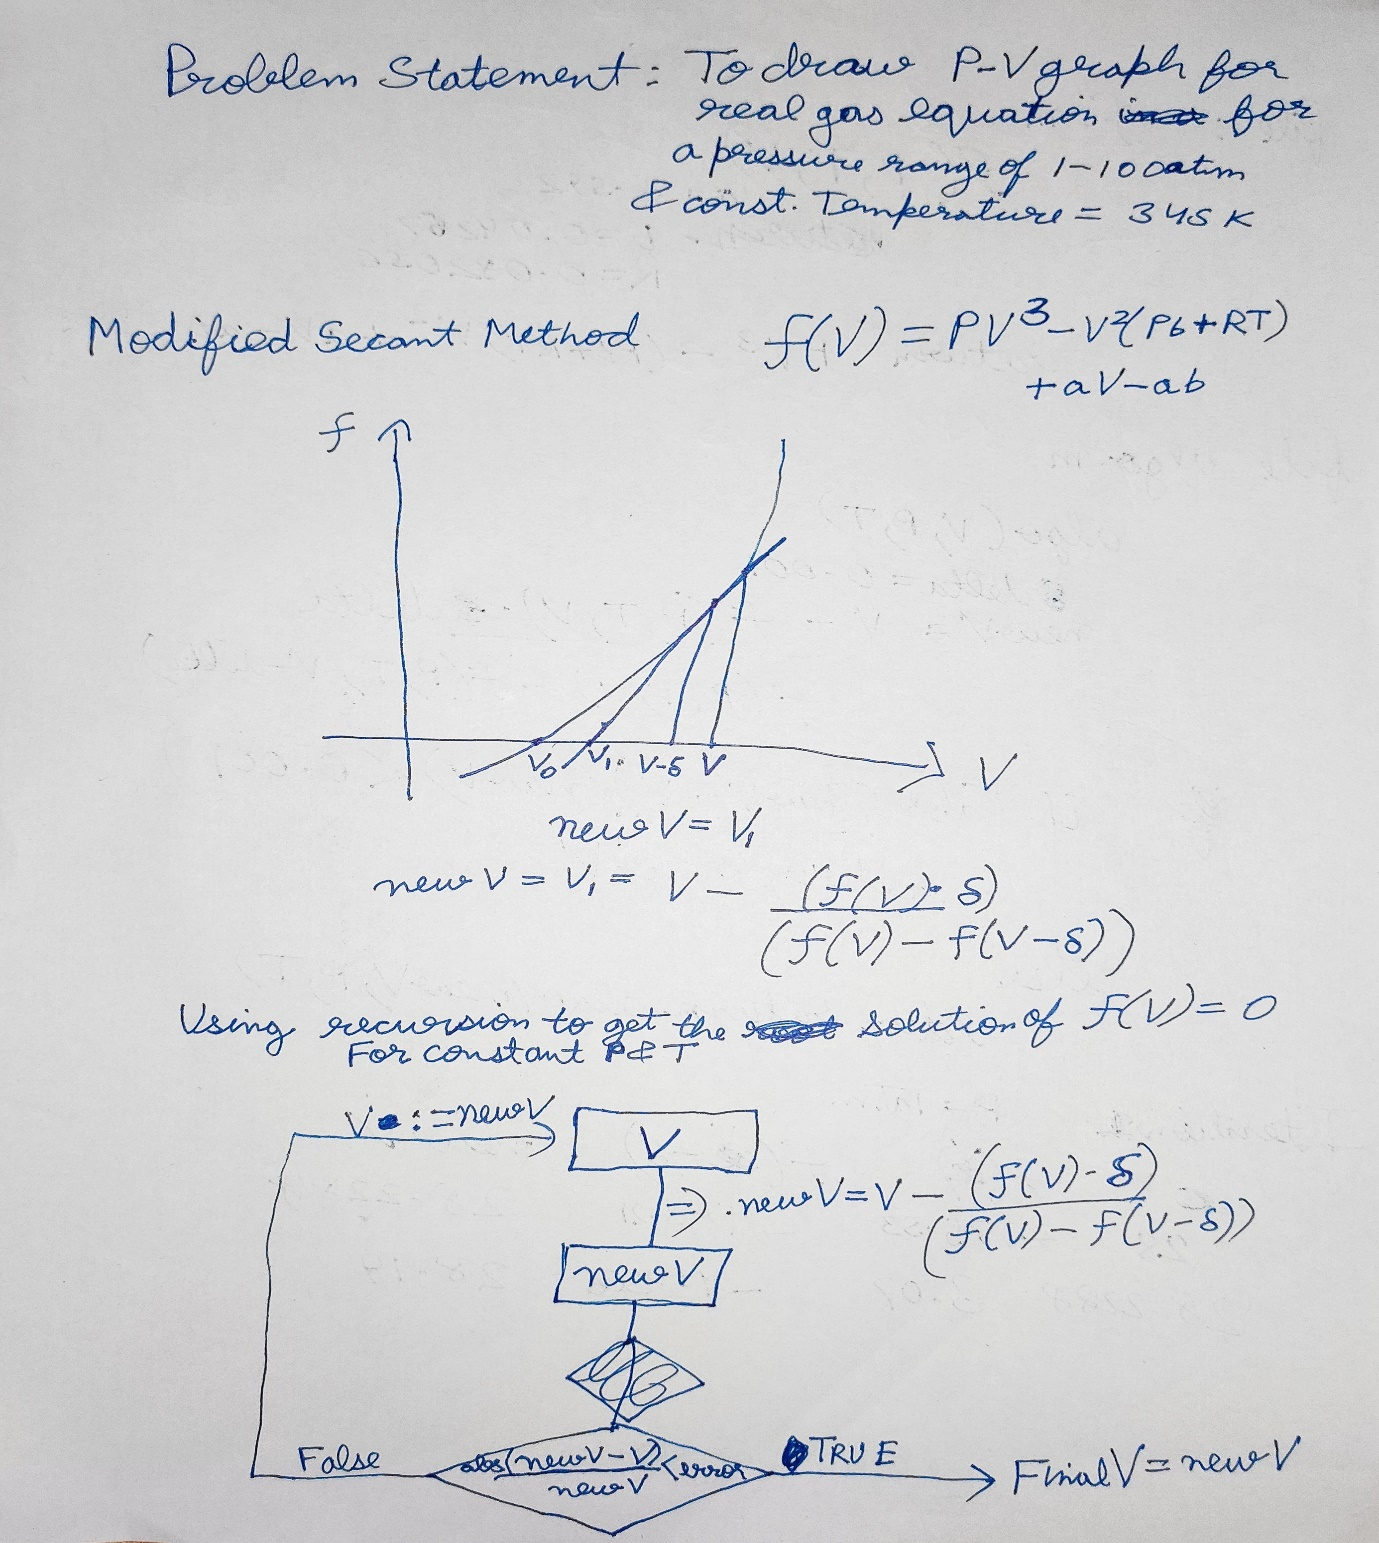 Problem Statement: To draw P-V graph for
real gas equation for
a pressure range of 1-100atm
& const. Temperature = 345 K
Modified Secant Method
f(V) = PV³-V²(Pb+RT)
+aV-ab
f
V₀ V₁ V-δ V
V
new V = V₁
new V = V₁ = V - (f(V)·δ)
(f(V) - f(V-δ))
Using recursion to get the solution of f(V)=0
For constant P&T
V:=newV
V
⇒ newV=V - (f(V)·δ)
(f(V) - f(V-δ))
newV
False
abs(newV-V) <error
newV
TRUE
FinalV=newV